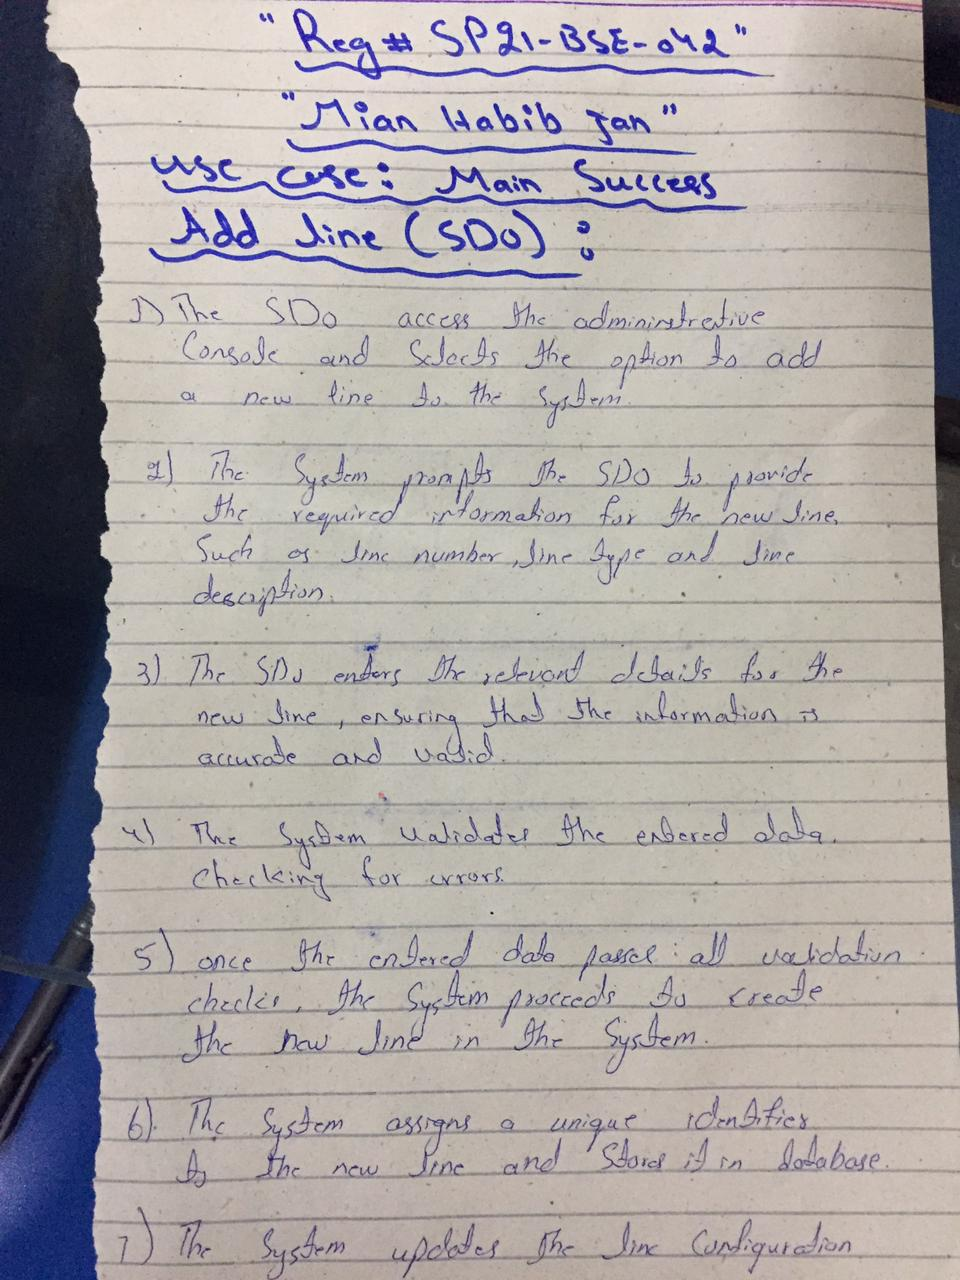 "Reg# SP21-BSE-042"
"Mian Habib Jan"
use case: Main Success
Add line (SDO) :
1) The SDO access the admininstrative
Console and Selects the option to add
a new line to the System.
2) The System prompts the SDO to provide
the required information for the new line,
Such as line number, line type and line
description.
3) The SDO enters the relevant details for the
new line, ensuring that the information is
accurate and valid.
4) The System validates the entered data,
checking for errors.
5) once the entered data passes all validation
checks, the System proceeds to create
the new line in the System.
6) The System assigns a unique identifier
to the new line and Stores it in database.
7) The System updates the line Configuration